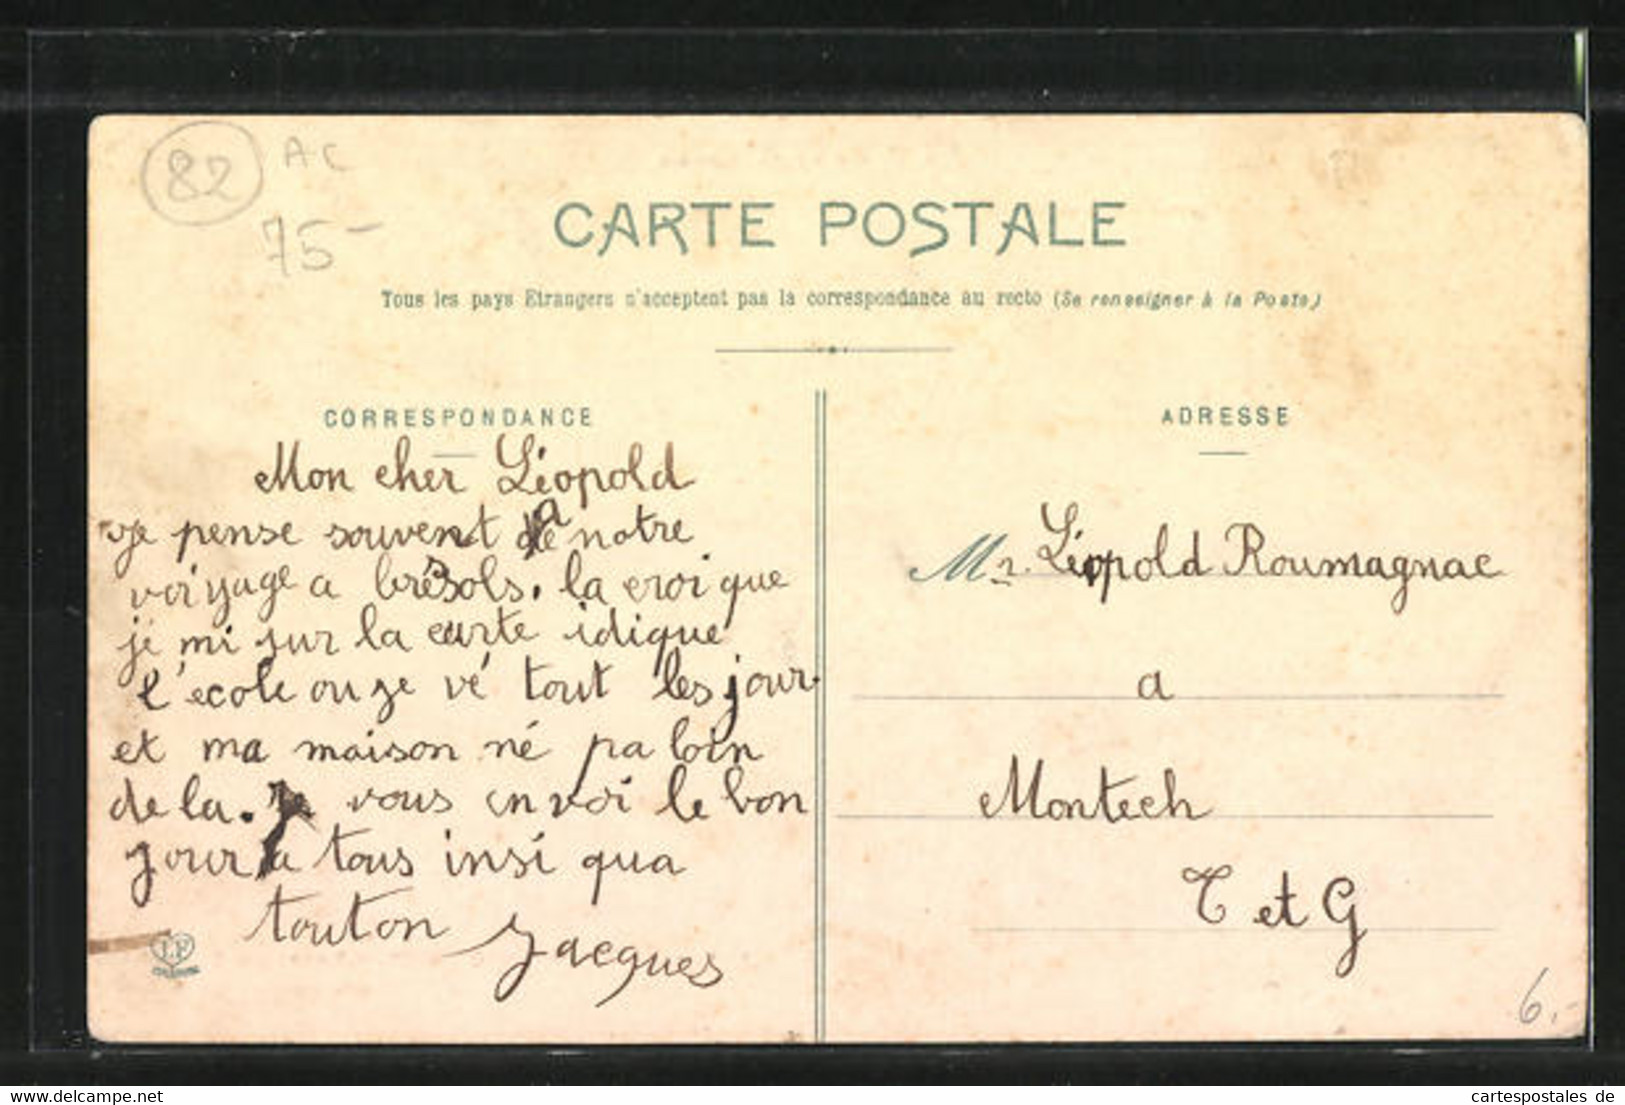 82
AC
75-
CARTE POSTALE
Tous les pays Etrangers n'acceptent pas la correspondance au recto (Se renseigner à la Poste)
CORRESPONDANCE
Mon cher Léopold
je pense souvent a notre
voiyage a brésols. la croi que
jé mi sur la carte idique
l'école ou ge vé tout les jour
et ma maison né pa loin
de la. je vous envoi le bon
jour a tous insi qua
touton Jacques
ADRESSE
Mr. Léopold Roumagnac
a
Montech
T et G
6.-
cartespostales de